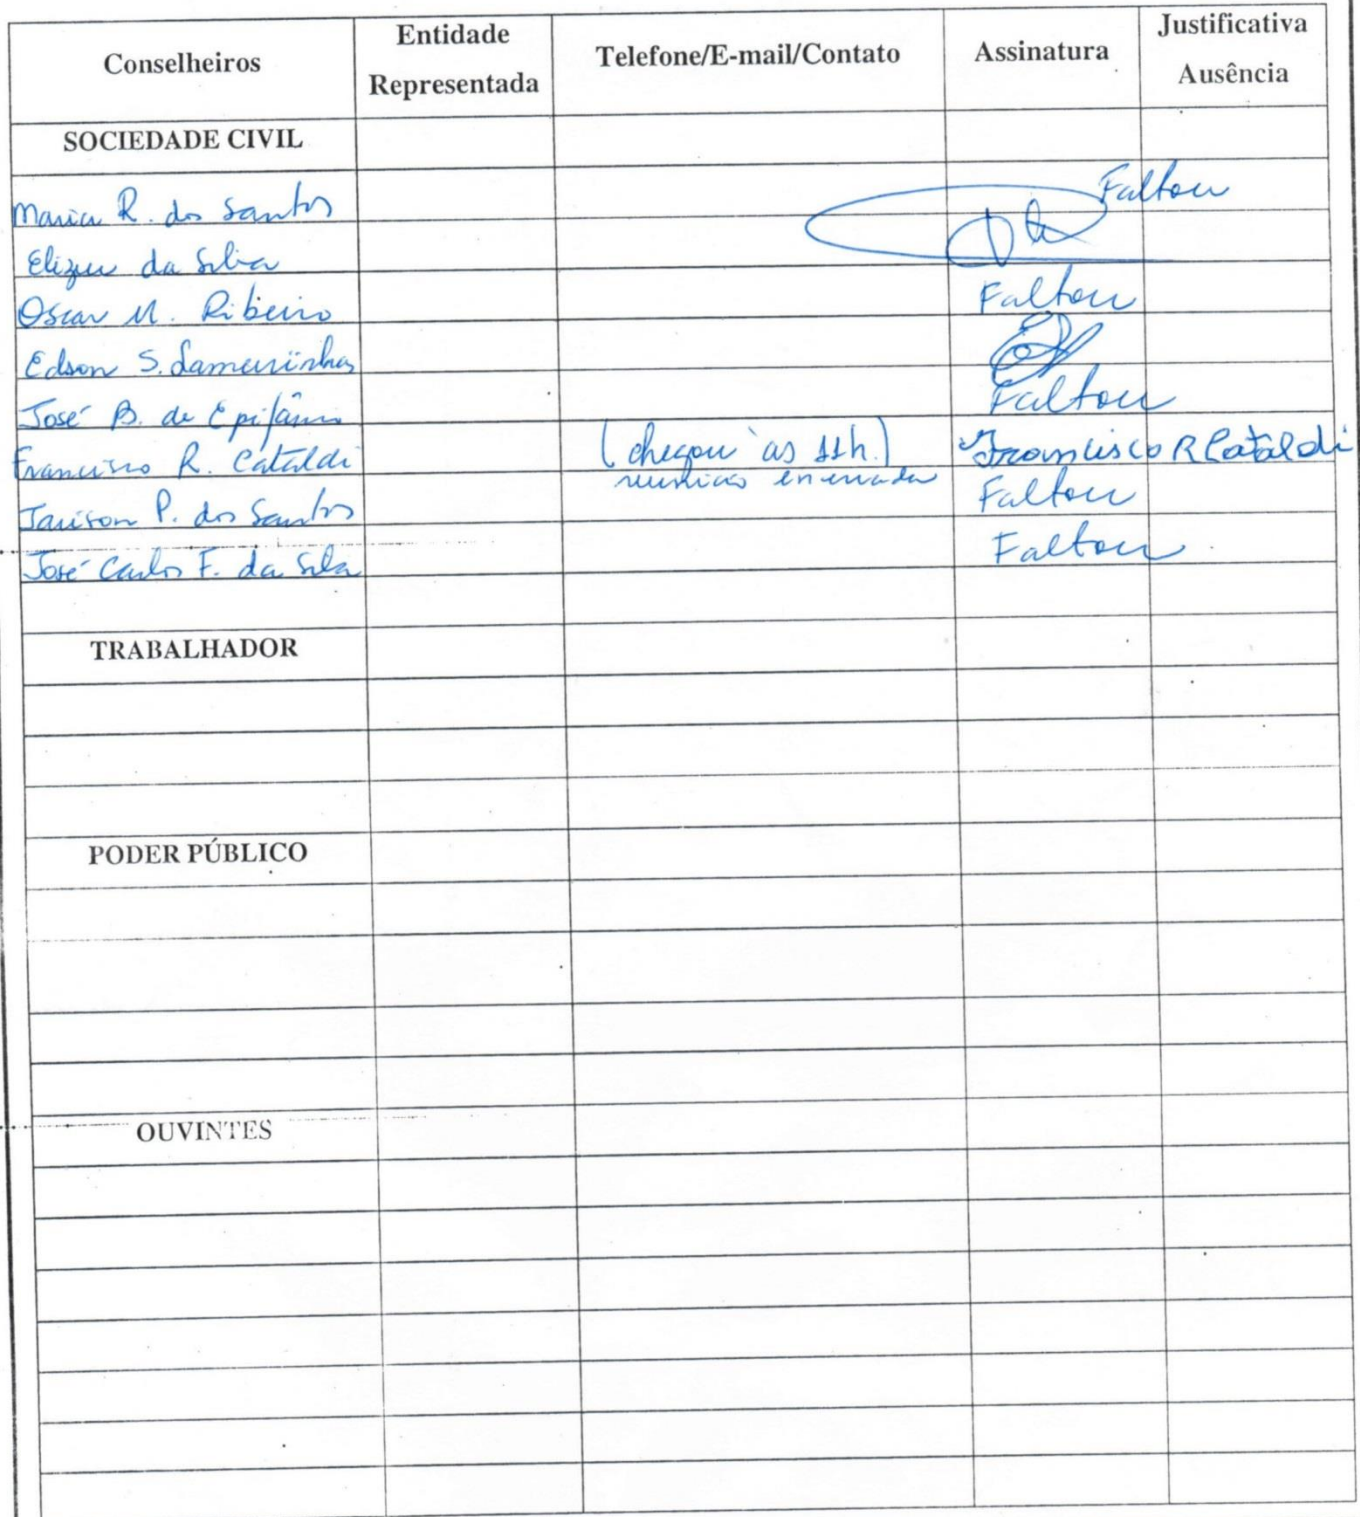 Conselheiros Entidade Representada Telefone/E-mail/Contato Assinatura Justificativa Ausência
SOCIEDADE CIVIL
Maria R. dos Santos Faltou
Elizeu da Silva
Oscar M. Ribeiro Faltou
Edson S. Lameirinhas
José B. de Epifânio Faltou
Francisco R. Cataldi (chegou às 11h.) Francisco R Cataldi
reunião encerrada
P. dos Santos Faltou
José Carlos F. da Silva Faltou
TRABALHADOR
PODER PÚBLICO
OUVINTES